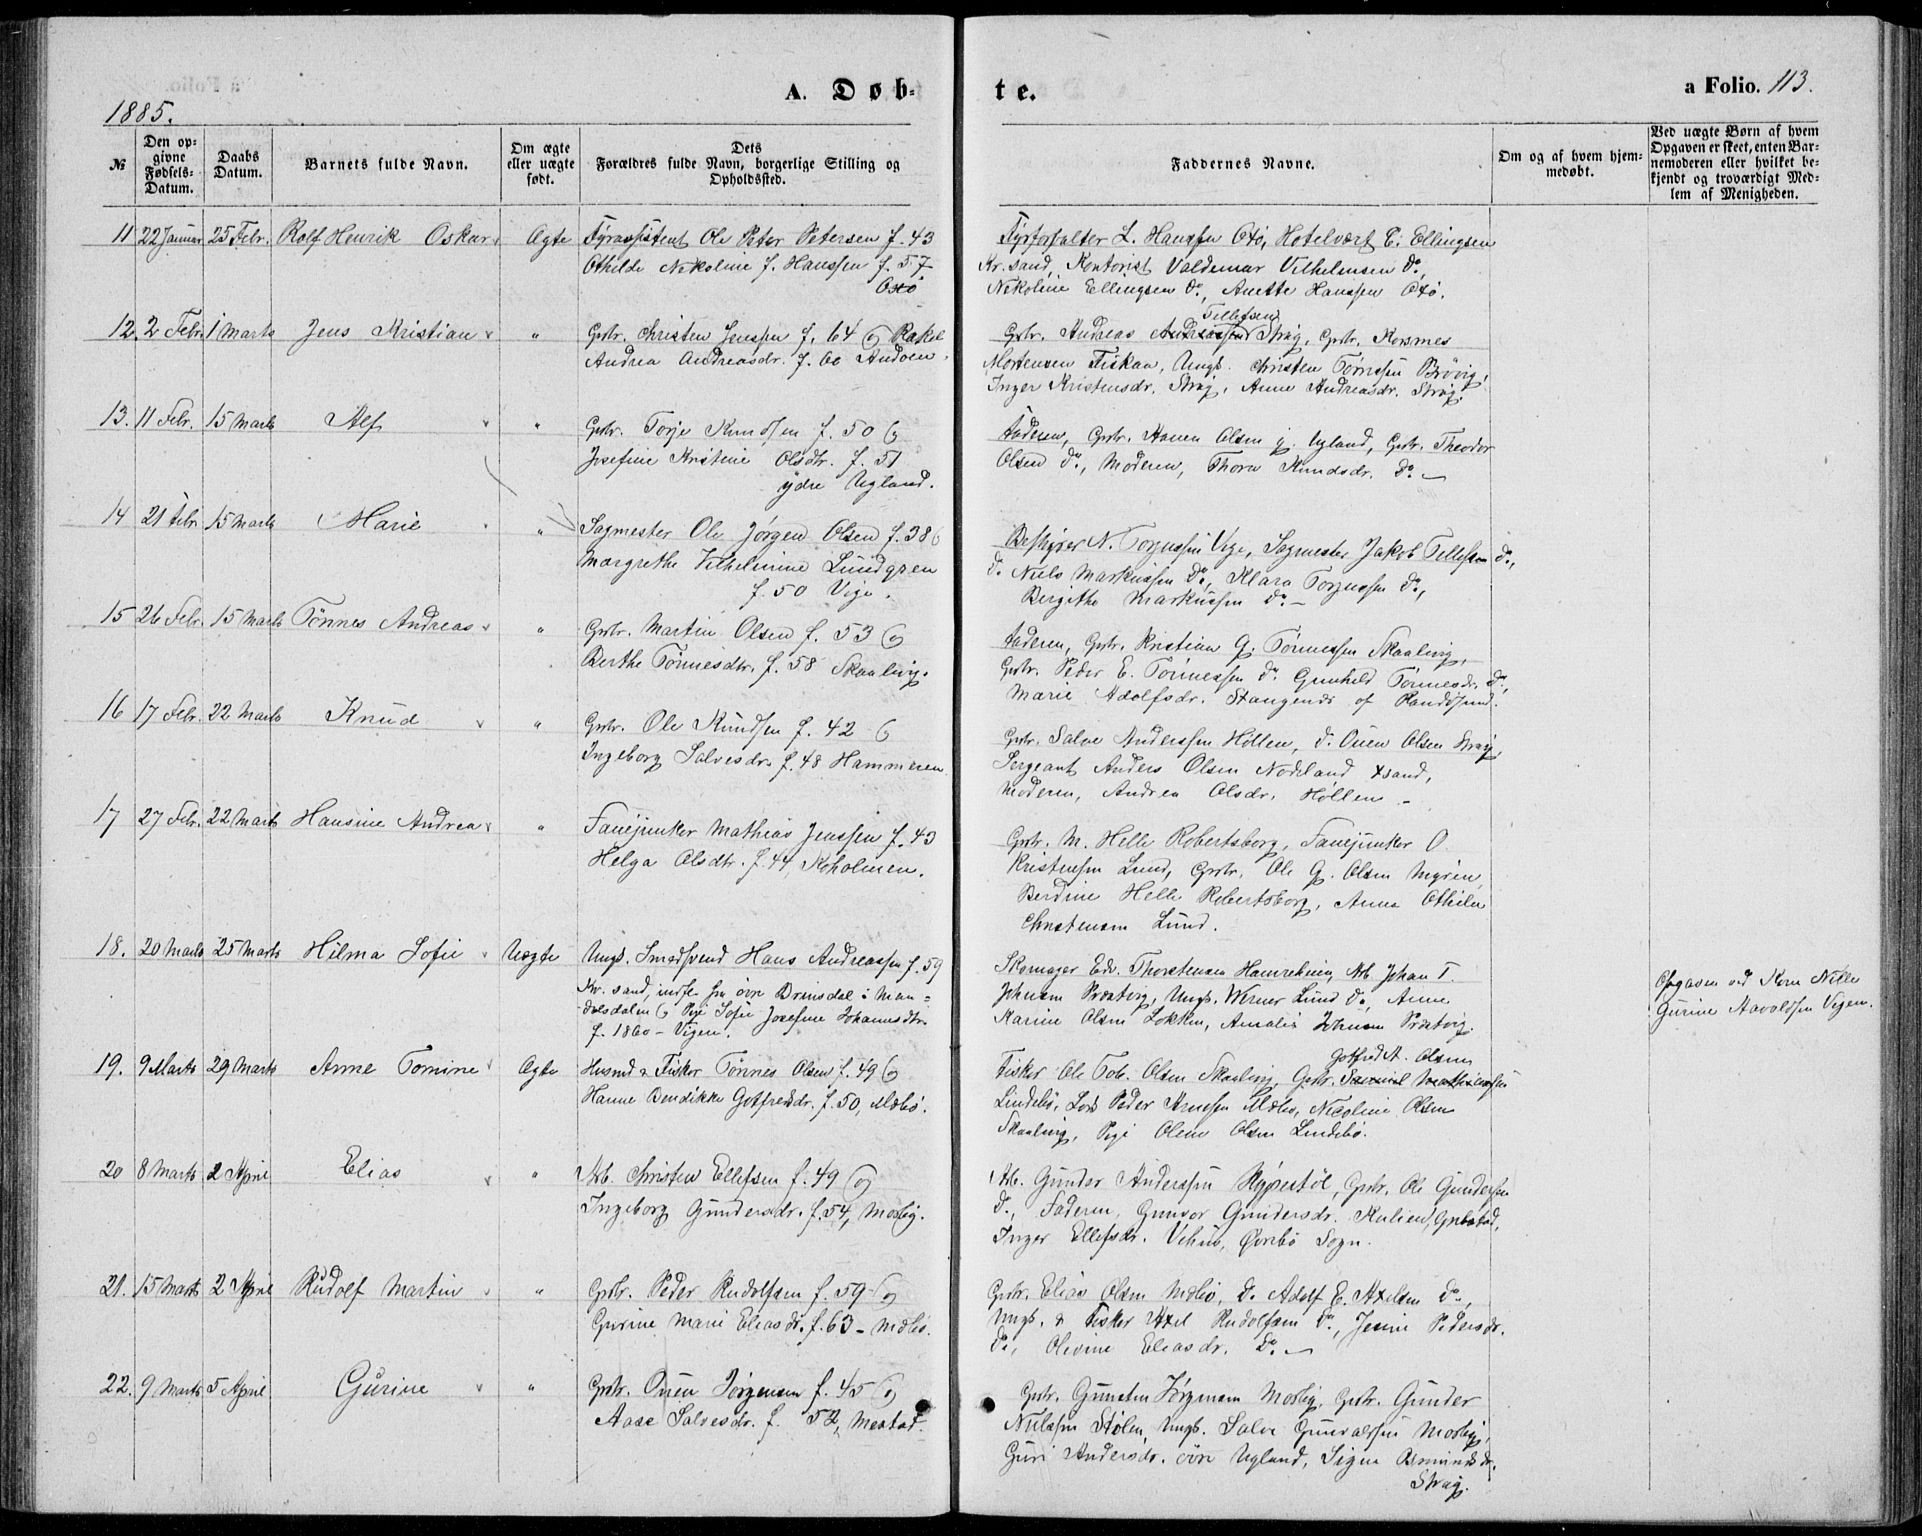 A. Døb-
te.
a Folio. 113.
1885.
№
Den op-
givne
Fødsels-
Datum.
Daabs
Datum.
Barnets fulde Navn.
Om ægte
eller uægte
født.
Dets
Forældres fulde Navn, borgerlige Stilling og
Opholdssted.
Faddernes Navne.
Om og af hvem hjem-
medøbt.
Ved uægte Børn af hvem
Opgaven er skeet, enten Bar-
nemoderen eller hvilket be-
kjendt og troværdigt Med-
lem af Menigheden.
11 22 Januar 25 Febr. Rolf Henrik Oskar Ægte Fyrassistent Ole Peter Petersen f. 43
Othilde Nikoline f. Hanssen f. 57
Oxö
Fyrforvalter L. Hanssen Oxö, Hotelvært E. Ellingsen
Kr.sand, Kontorist Valdemar Vilhelmsen do,
Nikoline Ellingsen do, Anette Hanssen Oxö.
12. 2 Febr. 1 Marts Jens Kristian " Grbr. Christen Jenssen f. 64 og Rakel
Andrea Andreasdr. f. 60 Andøen.
Tellefsen
Grbr. Andreas Andreassen Strag, Grbr. Rasmus
Mortensen Fiskaa, Ungk. Christen Tørressen Bróvig,
Inger Kristensdr. Strag, Anne Andreasdr. Strag.
13. 11 Febr. 15 Marts Alf " Grbr. Torje Knudsen f. 50 og
Josefine Kristine Olsdtr. f. 51
ydre Ugland.
Faderen, Grbr. Hans Olsen y. Ugland, Grbr. Theodor
Olsen do, Moderen, Thora Knudsdr. do
14 21 Febr 15 Marts Marie " Sagmester Ole Jørgen Olsen f. 38 og
Margrethe Vilhelmine Lundgren
f. 50 Vige.
Bestyrer N. Torjussen Vige, Sagmester Jakob Tellefsen do,
do Niels Markussen do, Klara Torjussen do,
Bergithe Markussen do
15 26 Febr. 15 Marts Tönnes Andreas " Grbr. Martin Olsen f. 53 og
Berthe Tönnesdtr. f. 58 Skaalevig.
Faderen, Grbr. Kristian G. Tönnessen Skaalevig,
Grbr. Peder E. Tönnessen do Gunhild Tönnesdr. do,
Marie Adolfsdr. Stangenes af Randösund.
16 17 Febr. 22 Marts Knud " Grbr. Ole Knudsen f. 42 og
Ingeborg Salvesdr. f. 48 Hammeren
Grbr. Salve Anderssen Höllen, do Ouen Olsen Strag,
Sergeant Anders Olsen Nodeland Xsand,
Moderen, Andrea Olsdr. Höllen
17 27 Febr. 22 Marts Hansine Andrea " Fanejunker Mathias Jenssen f. 43
Helga Olsdtr. f. 44, Koholmen.
Grbr. M. Helle Robertsborg, Fanejunker O.
Kristensen Lund, Grbr. Ole G. Olsen Myren,
Berdine Helle Robertsborg, Anna Othilie
Christensen Lund.
18. 20 Marts 25 Marts Hilma Sofie Uægte Ungk. Smedsvend Hans Andreassen f. 59
Kr.sand, indfl. fra övre Brinsdal i Man-
dalsdalen og Pige Sofie Josefine Johannesdtr.
f. 1860 - Vigen.
Skomager Edv. Thorstensen Hamreheien, Arb. Johan T.
Johnsen Prestvig, Ungk. Werner Lund do, Anne
Karine Olsen Lokken, Amalie Johnsen Prestvig.
Opgaven ved Kone Nille
Gurine Aavoldsen Vigen.
19. 9 Marts 29 Marts Anne Tomine Ægte Husmd & Fisker Tönnes Olsen f. 49 og
Hanne Bendikke Gotfredsdr. f. 50, Mæbö.
Gotfred A. Olsen
Fisker Ole Tob. Olsen Skaalevig, Grbr. Samuel Mathiassen
Lindebö, Lods Peder Knudsen Mæbö, Nicoline Olsen
Skaalevig, Pige Olene Olsen Lindebö.
20 8 Marts 2 April Elias " Arb. Christen Ellefsen f. 49 og
Ingeborg Gundersdr. f. 54, Mosby.
Arb. Gunder Anderssen Rypestöl, Grbr. Ole Gundersen
do, Faderen, Gunvor Gundersdr. Kulien, Grebstad,
Inger Ellefsdr. Vehus, Øvrebö Sogn.
21. 15 Marts 2 April Rudolf Martin " Grbr. Peder Rudolfsen f. 59 og
Gurine Marie Eliasdr. f. 63 - Mæbö.
Grbr. Elias Olsen Mæbö, do Adolf E. Axelsen do,
Ungk. & Fisker Axel Rudolfsen do, Jenine Pedersdr.
do, Olevine Eliasdr. do
22. 9 Marts 5 April Gurine " Grbr. Ouen Jörgensen f. 45 og
Aase Salvesdr. f. 52, Mestad.
Grbr. Gunsten Jörgensen Mosby, Grbr. Gunder
Nielssen Stölen, Ungk. Salve Gunvaldsen Mosby,
Guri Andersdr. övre Ugland, Signe Asmundsdr.
Strag.